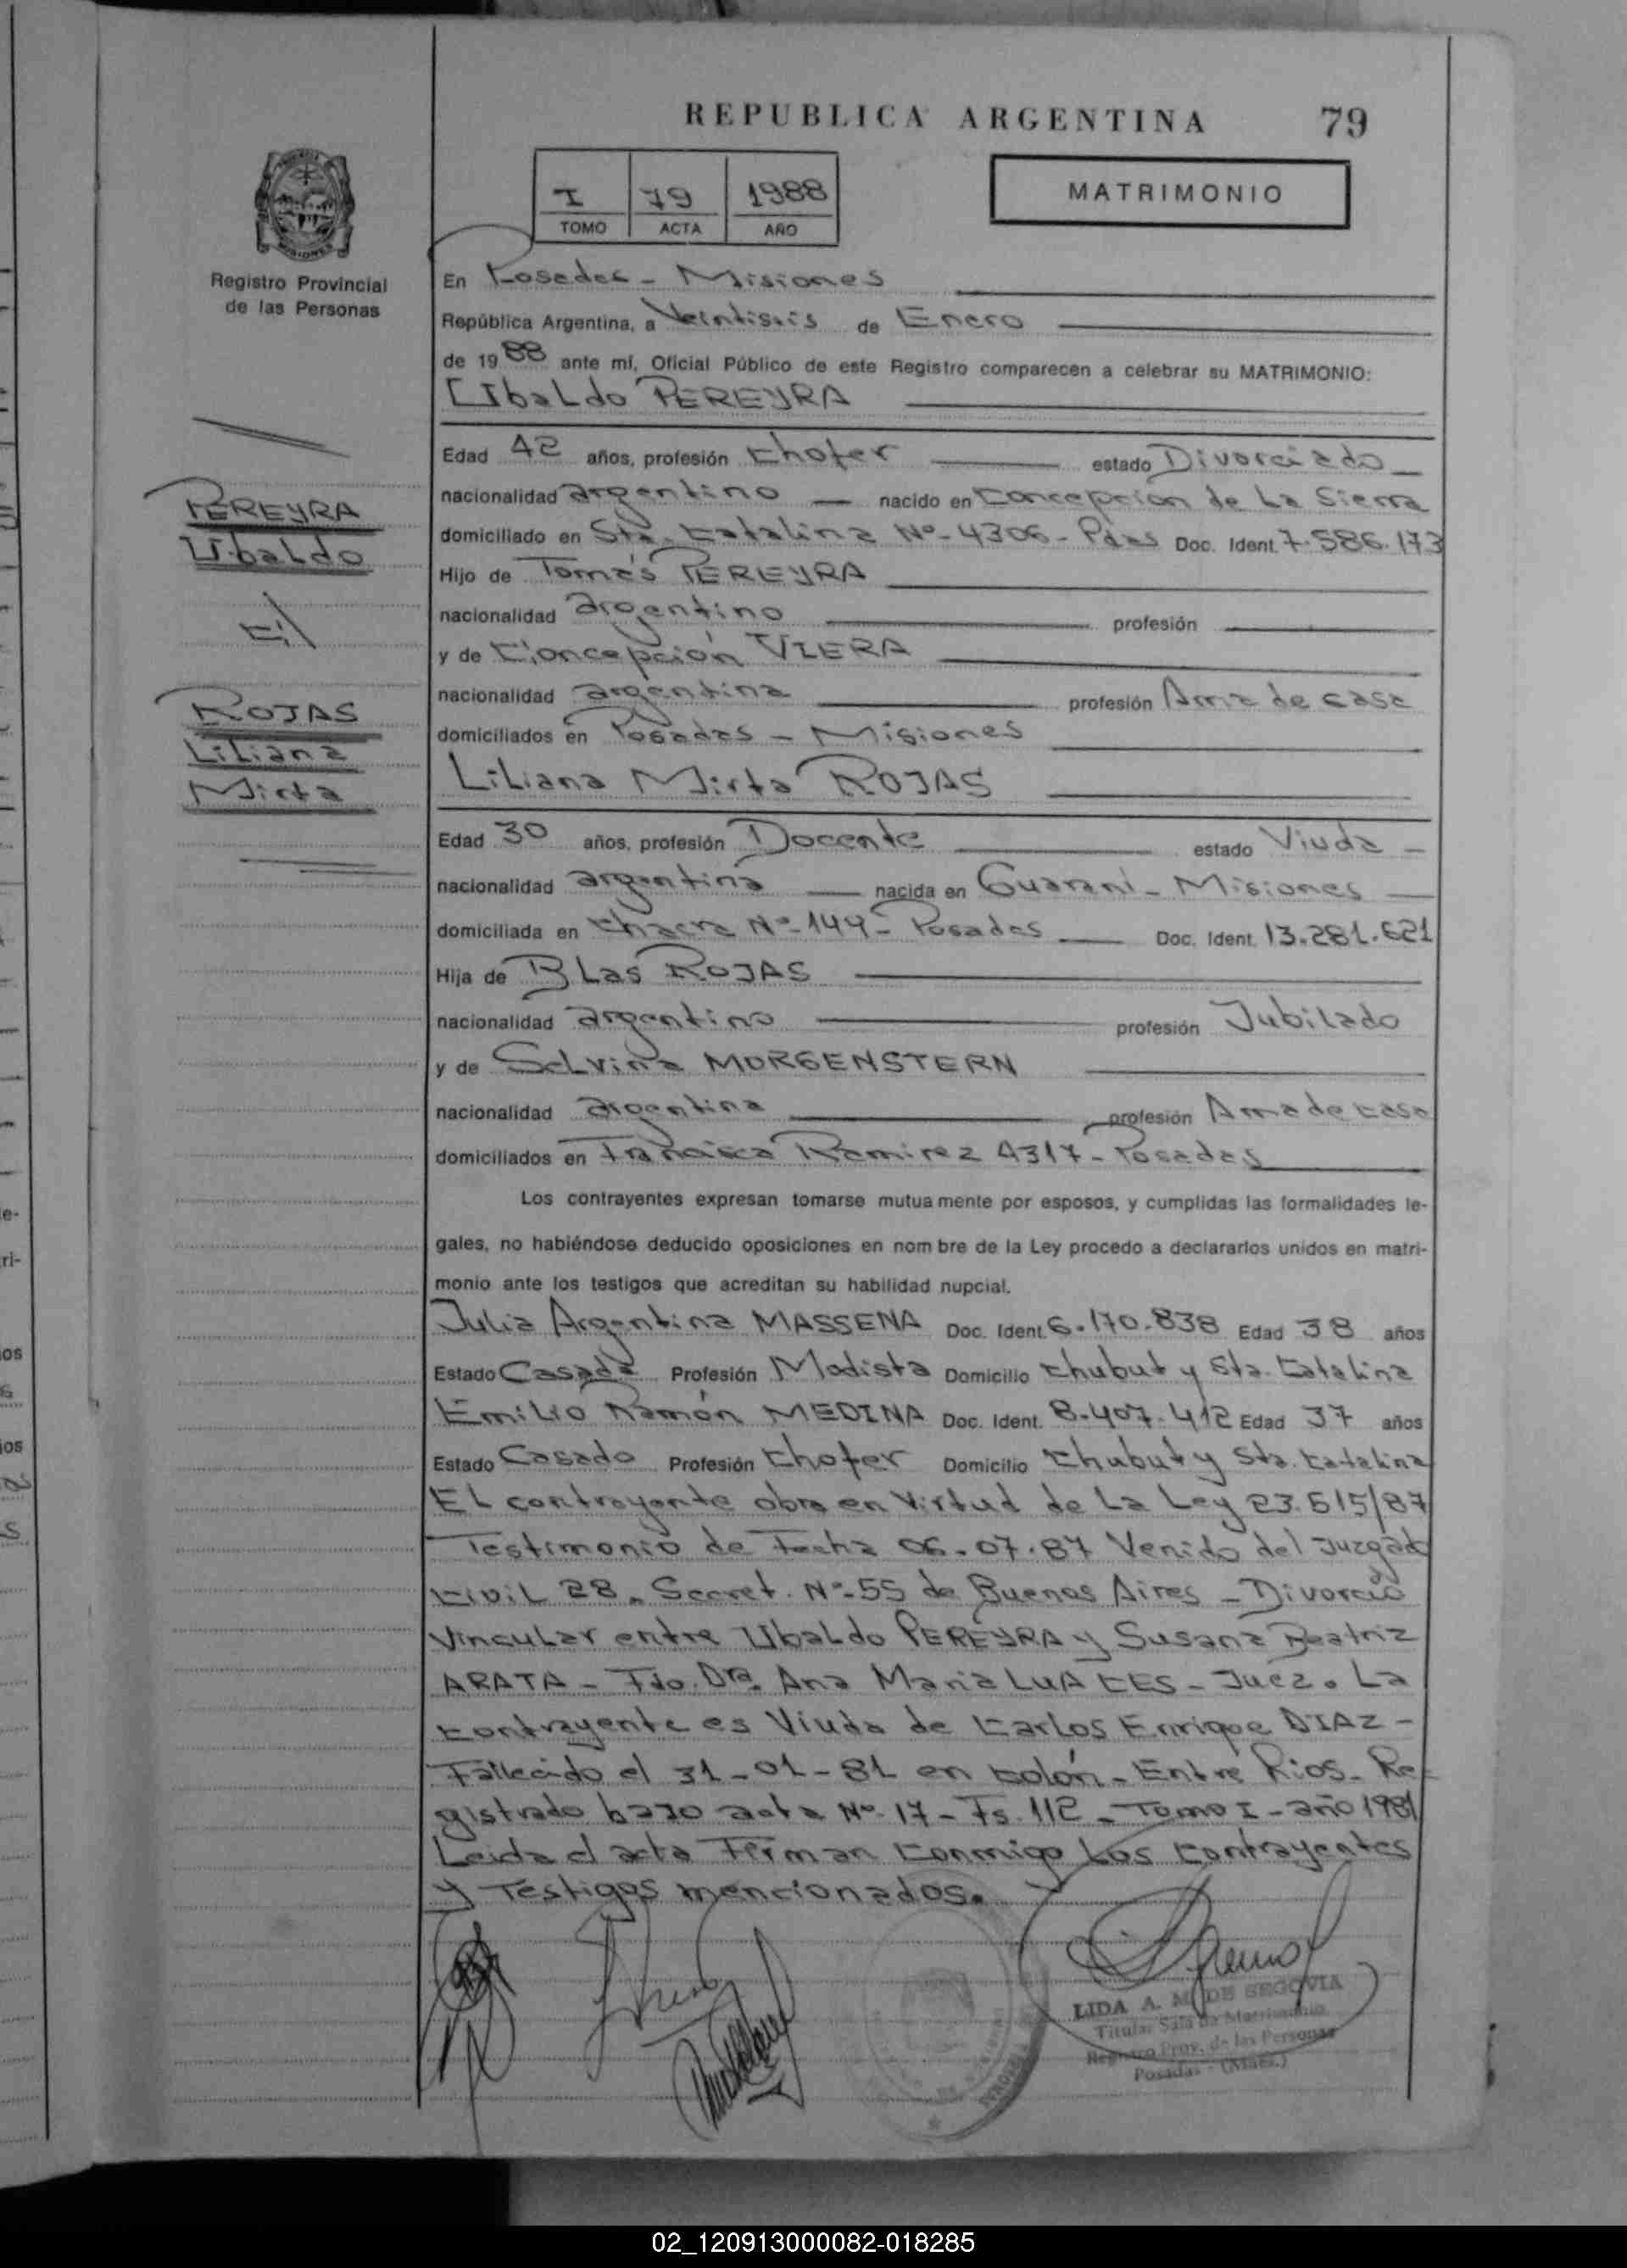 REPUBLICA ARGENTINA 79
MATRIMONIO
I 79 1988
TOMO ACTA AÑO
Registro Provincial
de las Personas
En Posadas - Misiones
República Argentina, a Veintiseis de Enero
de 1988 ante mí, Oficial Público de este Registro comparecen a celebrar su MATRIMONIO:
Ubaldo PEREYRA
Edad 42 años, profesión Chofer estado Divorciado
nacionalidad argentino nacido en Concepcion de La Sierra
domiciliado en Sta. Catalina Nº 4306 - Pdas Doc. Ident. 7.586.173
Hijo de Tomás PEREYRA
nacionalidad argentino profesión
y de Concepción VIERA
nacionalidad argentina profesión Ama de casa
domiciliados en Posadas - Misiones
Liliana Mirta ROJAS
PEREYRA
Ubaldo
c/
ROJAS
Liliana
Mirta
Edad 30 años, profesión Docente estado Viuda
nacionalidad argentina nacida en Guaraní - Misiones
domiciliada en Chacra Nº 149 - Posadas Doc. Ident. 13.281.621
Hija de Blas ROJAS
nacionalidad argentino profesión Jubilado
y de Selvina MORGENSTERN
nacionalidad argentina profesión Ama de casa
domiciliados en Francisca Ramirez 4317 - Posadas
Los contrayentes expresan tomarse mutuamente por esposos, y cumplidas las formalidades le-
gales, no habiéndose deducido oposiciones en nombre de la Ley procedo a declararlos unidos en matri-
monio ante los testigos que acreditan su habilidad nupcial.
Julia Argentina MASSENA Doc. Ident. 6.170.838 Edad 38 años
Estado Casada Profesión Modista Domicilio Chubut y Sta. Catalina
Emilio Ramón MEDINA Doc. Ident. 8.407.412 Edad 37 años
Estado Casado Profesión Chofer Domicilio Chubut y Sta. Catalina
El contrayente obra en virtud de La Ley 23.515/87
Testimonio de Fecha 06-07-87 Venido del Juzgado
Civil 28. Secret. Nº 55 de Buenos Aires - Divorcio
Vincular entre Ubaldo PEREYRA y Susana Beatriz
ARATA - Fdo. Dra. Ana Maria LUACES - Juez. La
contrayente es Viuda de Carlos Enrique DIAZ -
Fallecido el 31-01-81 en Colón - Entre Rios - Re-
gistrado bajo acta Nº 17 - Fs. 112 - Tomo I - año 1981
Leida el acta Firman Conmigo Los Contrayentes
y Testigos mencionados.
LIDA A. M. DE SEGOVIA
Titular Sala de Matrimonio
Registro Prov. de las Personas
Posadas - (Mnes.)
02_120913000082-018285